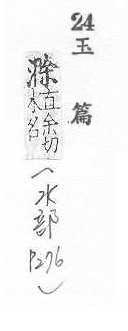 24
玉篇
滁直余切
水名
(水部
P276)